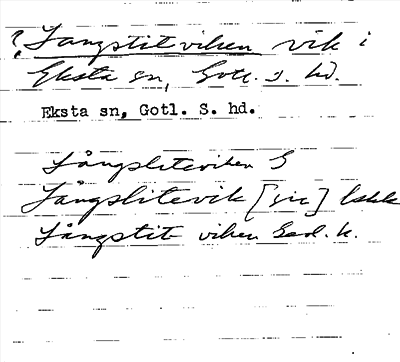 ? Langstitviken vik i
Eksta sn, Gotl. S. hd.
Eksta sn, Gotl. S. hd.
Långsliteviken S
Långslitevik [sic]
Långstit viken Geol. k.